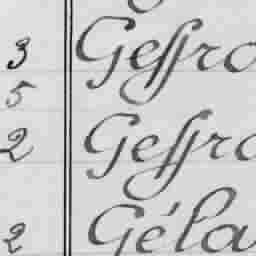 3 Geffro
5
2 Geffro
2 Géla